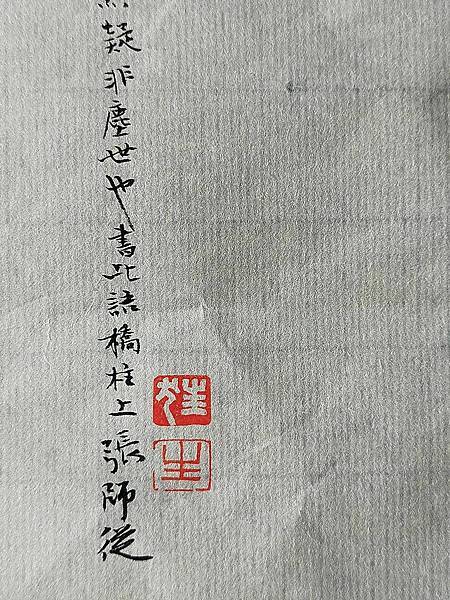 疑非塵世也書此語橋柱上張師從